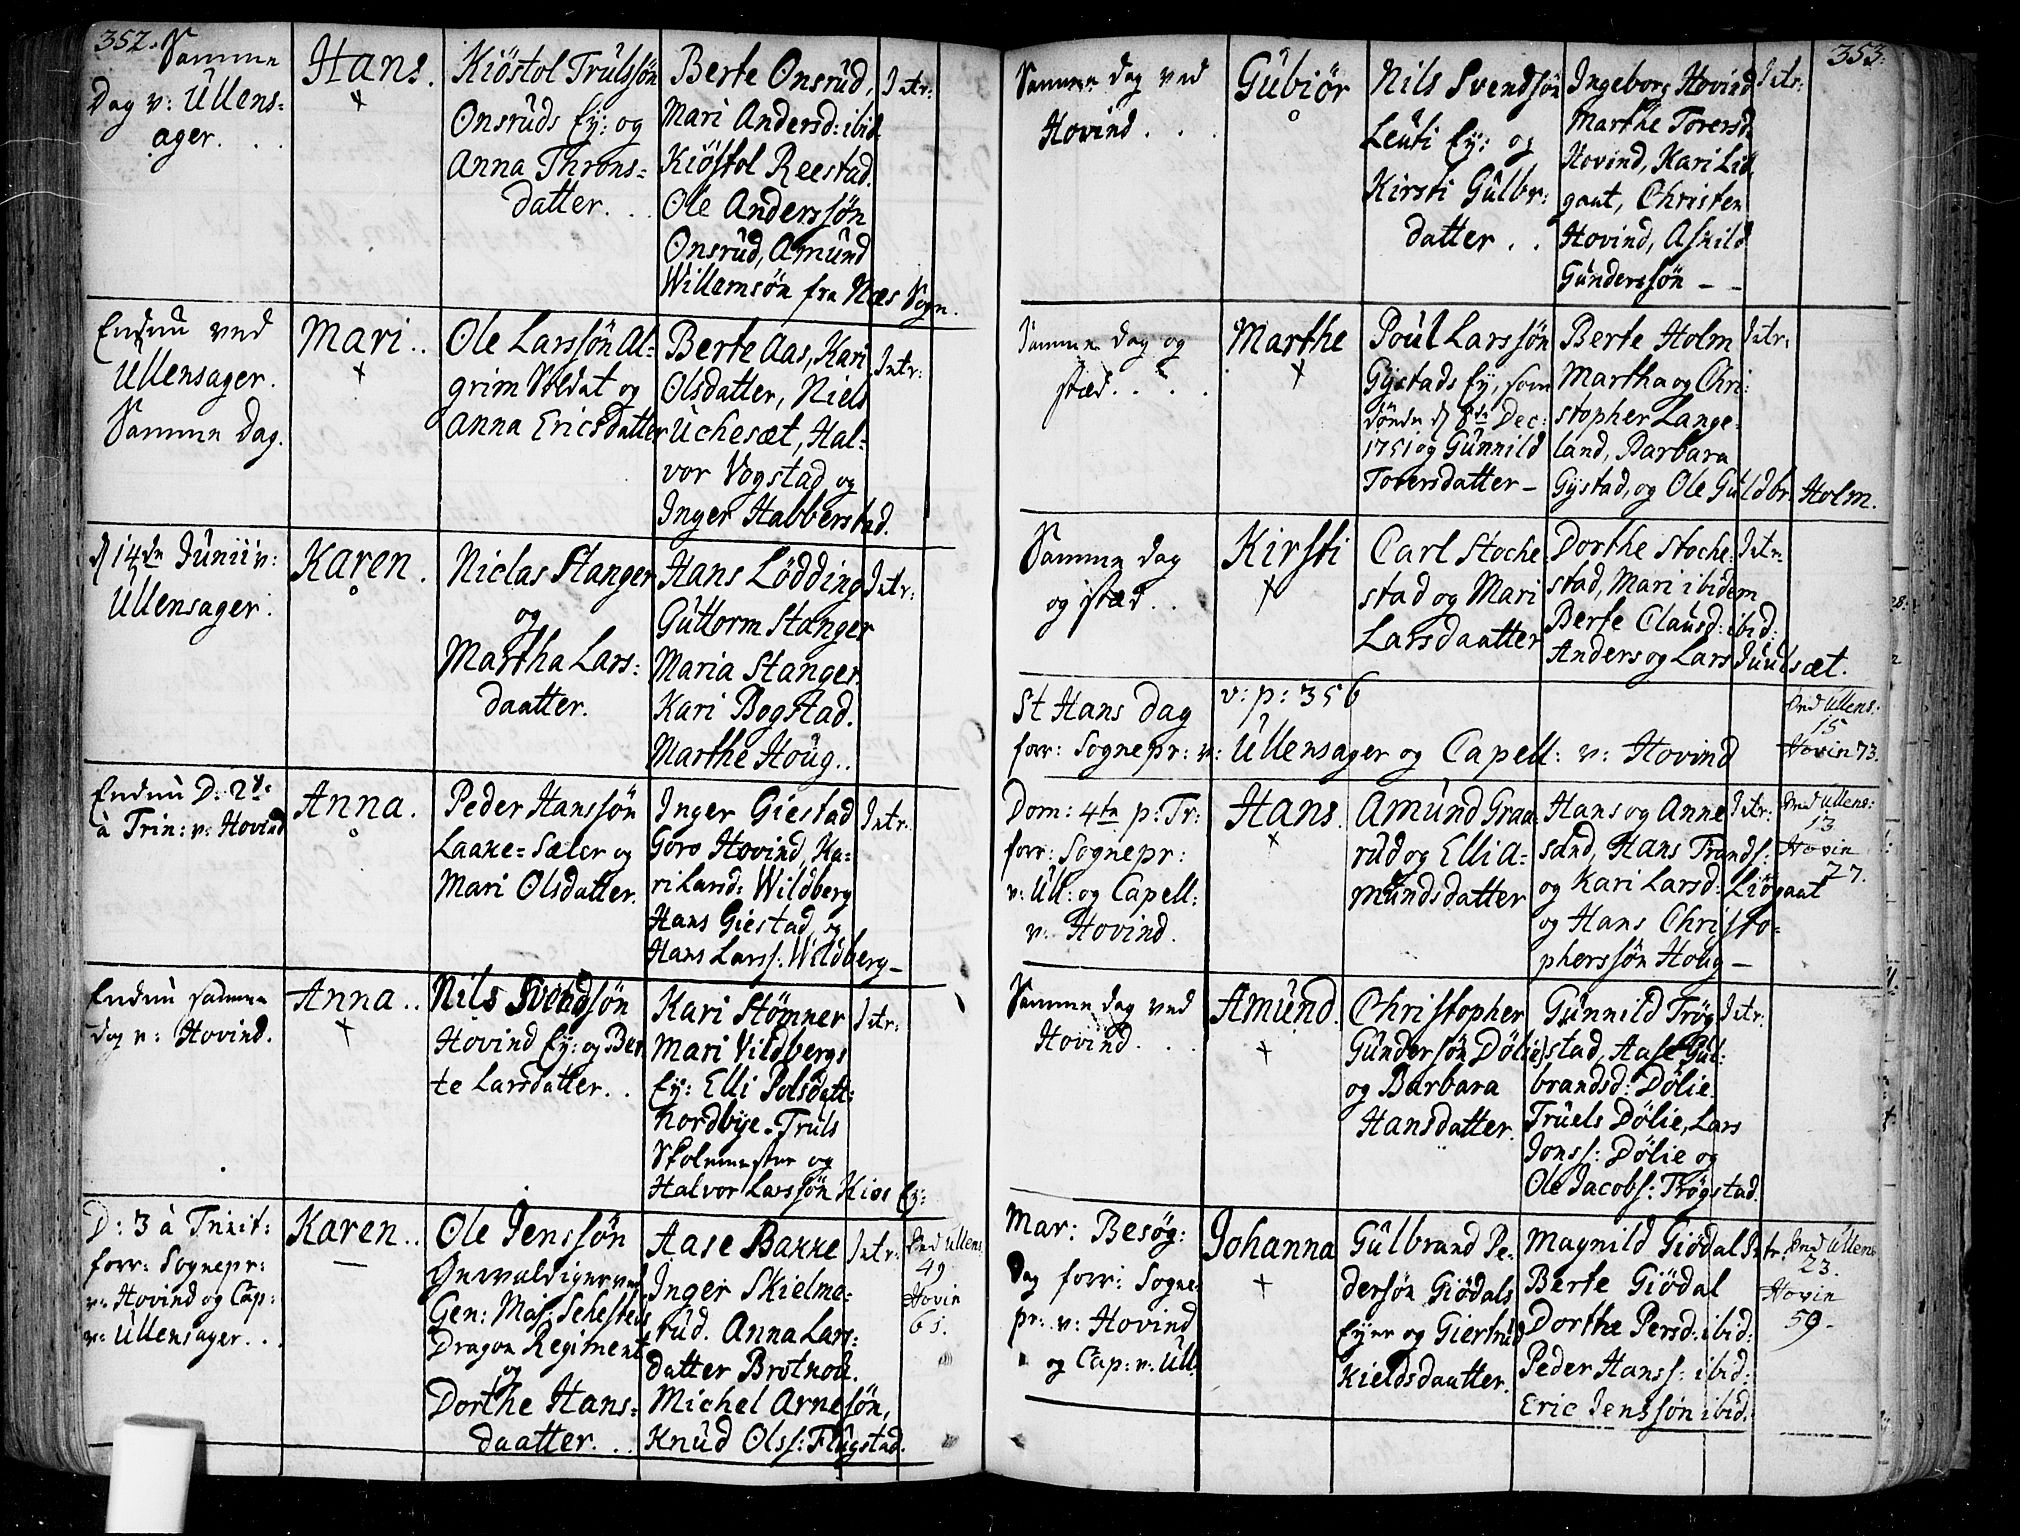 352.
Samme
Dag v: Ullens=
ager. . .
Hans.
Kiöstol Trulssön
Onsruds Ey: og
Anna Throns=
datter. . .
Berte Onsrud,
Mari Andersd: ibid
Kiöstol Reestad.
Ole Anderssön
Onsrud, Amund
Willemsön fra Næs Sogn.
Intr:
Endnu ved
Ullensager.
Samme Dag.
Mari..
Ole Larssön Al=
grim Soldat og
Anna Ericsdatter
Berte Aas, Kari
Olsdatter, Niels
Uchesæt, Hal=
vor Vogstad og
Inger Habberstad.
Intr:
d 14de Junii v:
Ullensager.
Karen.
Niclas Stanger
og
Martha Lars=
daatter.
Hans Lödding
Guttorm Stanger
Maria Stanger
Kari Bogstad.
Marthe Houg..
Intr:
Endnu D: 2d:
à Trin: v: Hovind
Anna.
Peder Hanssön
Laake=Sæler og
Mari Olsdatter.
Inger Giestad
Goro Hovind, Ka=
ri Larsd: Wildberg
Hans Giestad, og
Hans Larss: Wildberg_
Intr.
Endnu samme
dag v: Hovind.
Anna..
Nils Svendsön
Hovind Ey: og Ber
te Larsdatter..
Kari Stömner
Mari Vildbergs
Ey: Elli Polsdatt:
Nordbye. Truls
Skolemester og
Halvor Larssön Kios Ey:
Intr:
D: 3 à Trinit:
forr: Sognepr:
v: Hovind og Cap:
v: Ullensager...
Karen..
Ole Jenssön
Gevaldiger ved
Gen: Maj: Schesteds
Dragon Regiment
og
Dorthe Hans=
daatter. . .
Aase Bakke
Inger Skielme=
rud. Anna Lars=
datter Brotnou.
Michel Arnesön,
Knud Olss: Flugstad.
Intr:
Ved Ullens.
49
Hovin
61.
353.
Samme dag ved
Hovind. . .
Gubiör
Nils Svendsön
Leuti Ey: og
Kirsti Gulbr:
datter..
Ingeborg Hovind
Marthe Torersd.
Hovind, Kari Lid
gaat, Christen
Hovind, Askild
Gunderssön _ _
Intr:
Samme dag og
stæd. . . .
Marthe
Poul Larssön
Gystads Ey, som
döde d 8de Dec:
1751 og Gunnild
Torersdatter _
Berte Holm
Martha og Chri:
stopher Lange=
land, Barbara
Gystad, og Ole Guldbr Holm.
Intr:
Samme dag
og stæd..
Kirsti
Carl Stoche
stad og Mari
Larsdaatter
Dorthe Stoche:
stad, Mari ibidem
Berte Clausd: ibid:
Anders og Lars Juulsæt.
Intr.
St Hans dag v: p: 356
forr: Sognepr: v: Ullensager og Capell: v: Hovind
Ved Ullens:
15
Hovin 73.
Dom: 4ta p: Tr:
forr: Sognepr:
v: Ull: og Capell:
v: Hovind.
Hans.
Amund Graa=
rud og Elli A=
mundsdatter
Hans og Anne
sand, Hans Trands:
og Kari Larsd: Liögaat
og Hans Christo=
pherssön Houg _
Intr:
Ved Ullens:
13
Hovin
27.
Samme dag ved
Hovind. . .
Amund.
Christopher
Gundersön Dölie
og Barbara
Hansdatter.
Gunnild Trög
stad, Aase Gul=
brandsd: Dölie.
Truels Dölie, Lars
Jonss: Dölie og
Ole Jacobs: Trögstad.
Intr.
Mar: Besög:
Dag forr: Sogne
pr: v: Hovind
og Cap: v: Ull.
Johanna
Gulbrand Pe=
dersön Giödals
Eyer og Giertrud
Kieldsdaatter.
Magnild Giödal
Berte Giödal
Dorthe Persd: ibid:
Peder Hanss: ibid:
Eric Jenssön ibid:
Intr:
Ved Ullens
23.
Hovin
59.